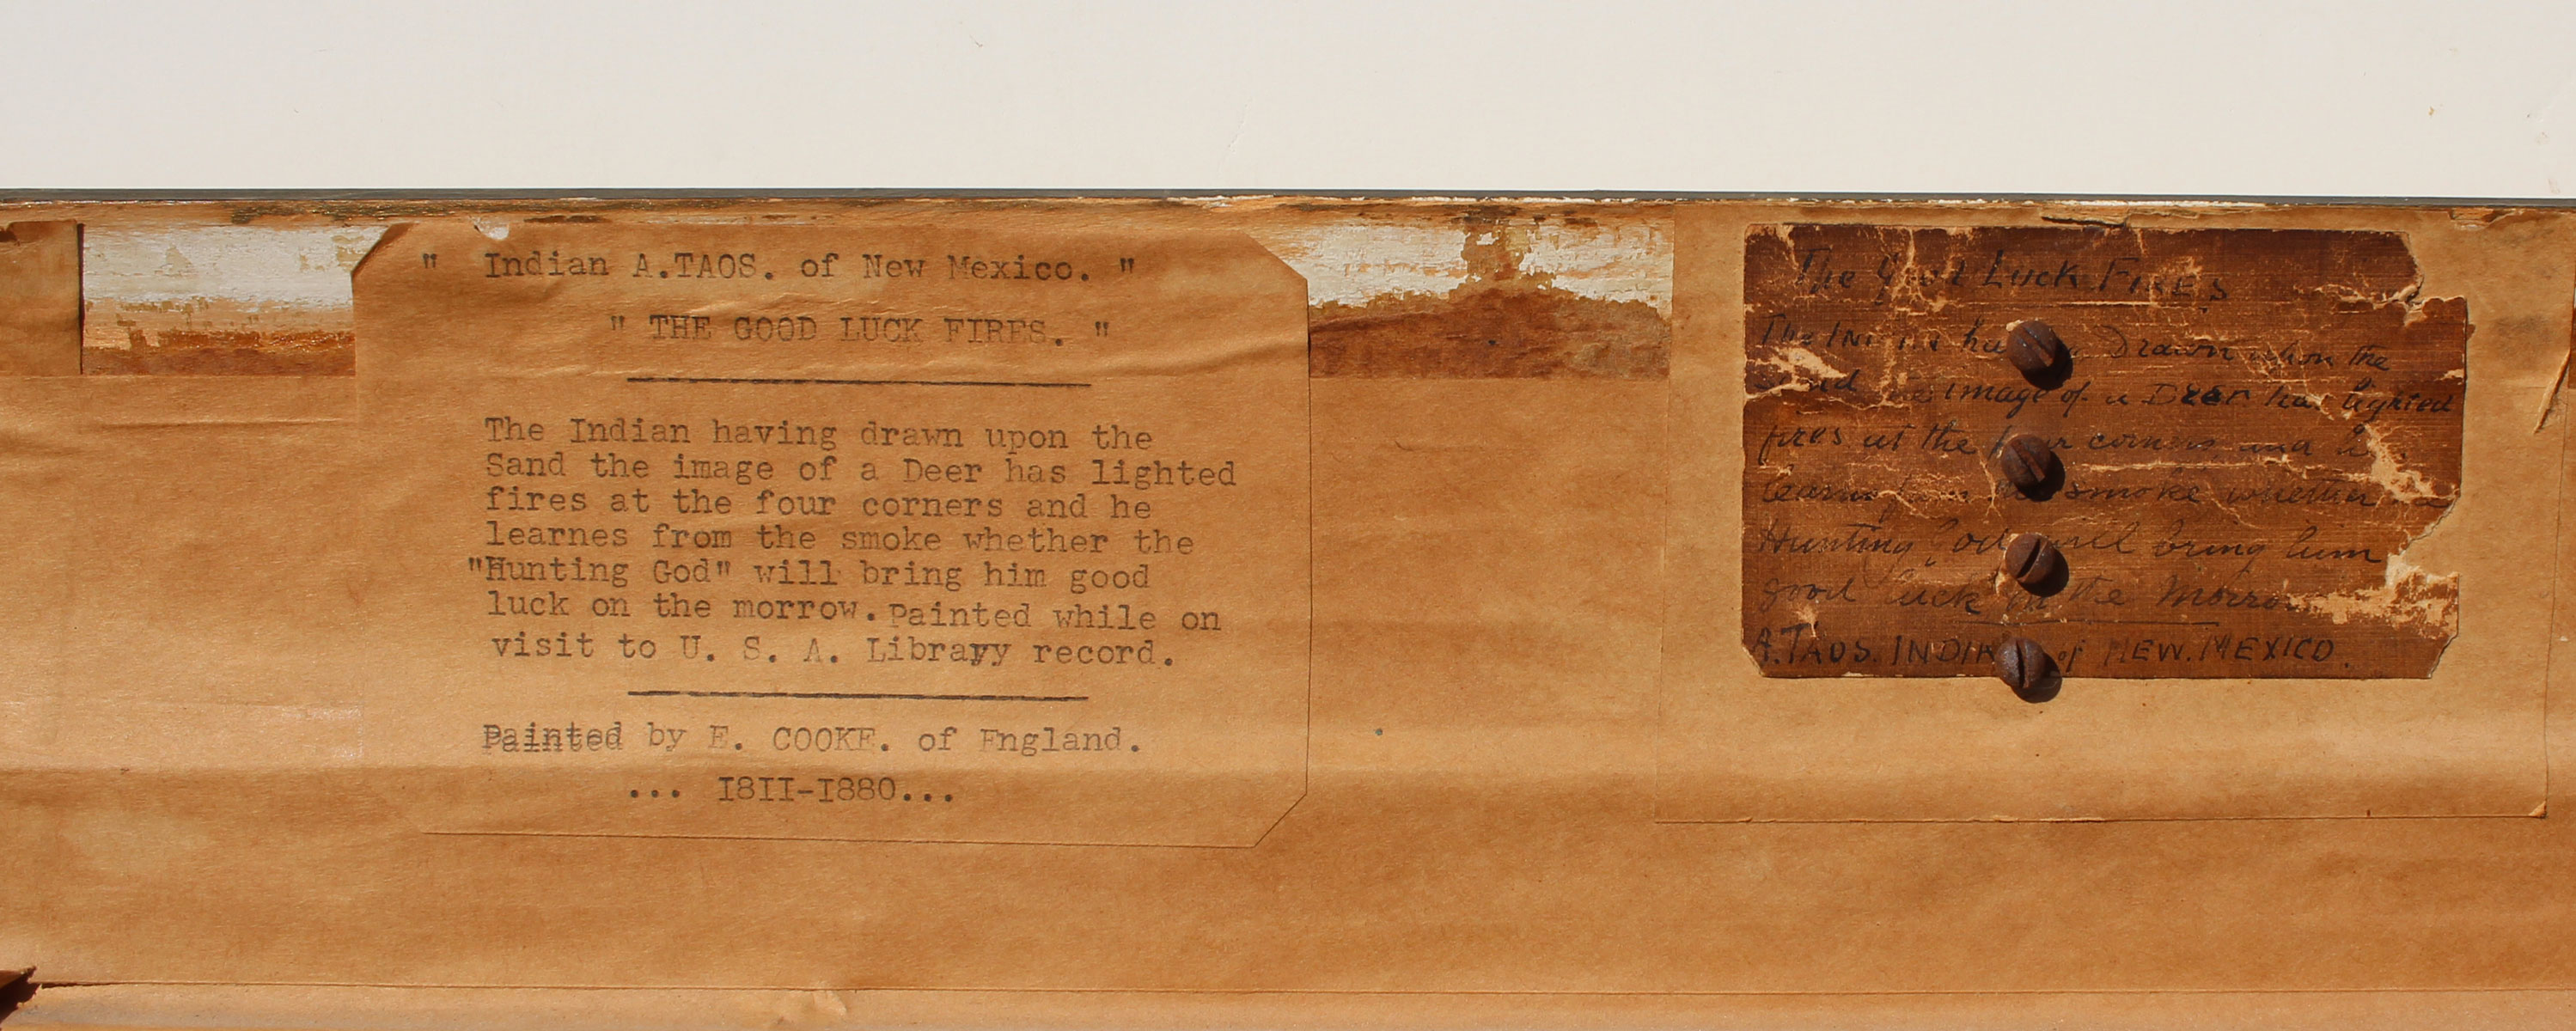 " Indian A.TAOS. of New Mexico. "
" THE GOOD LUCK FIRES. "
The Indian having drawn upon the
Sand the image of a Deer has lighted
fires at the four corners and he
learnes from the smoke whether the
"Hunting God" will bring him good
luck on the morrow. Painted while on
visit to U. S. A. Library record.
Painted by E. COOKE. of England.
... I8II-I880...
The Good Luck FIRES
The Drawn upon the
image of a DEER has lighted
fires at the corners
smoke whether
Hunting God will bring him
good luck the Morrow
A.TAOS. INDIAN of NEW.MEXICO.